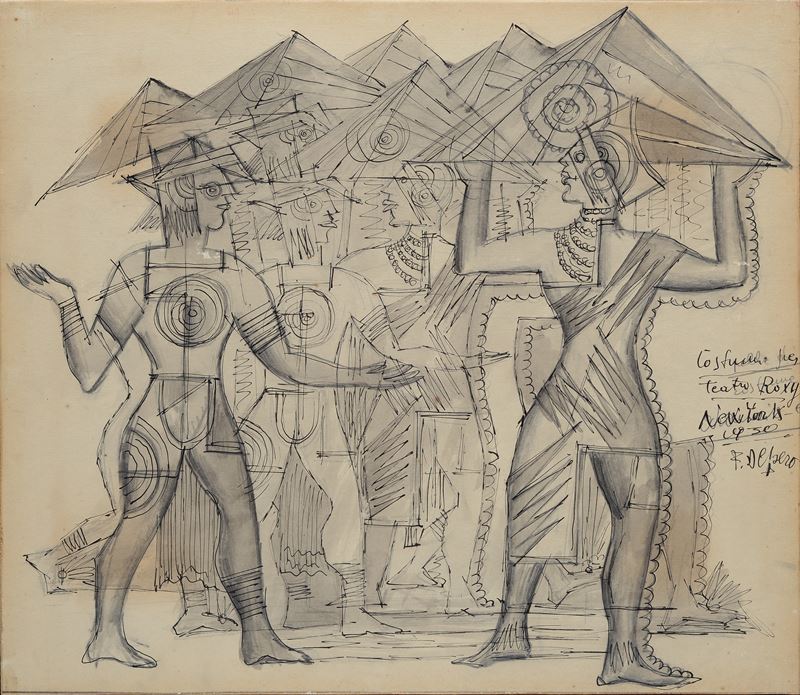 Costumi per
teatro Roxy
New York
1930
F. Depero